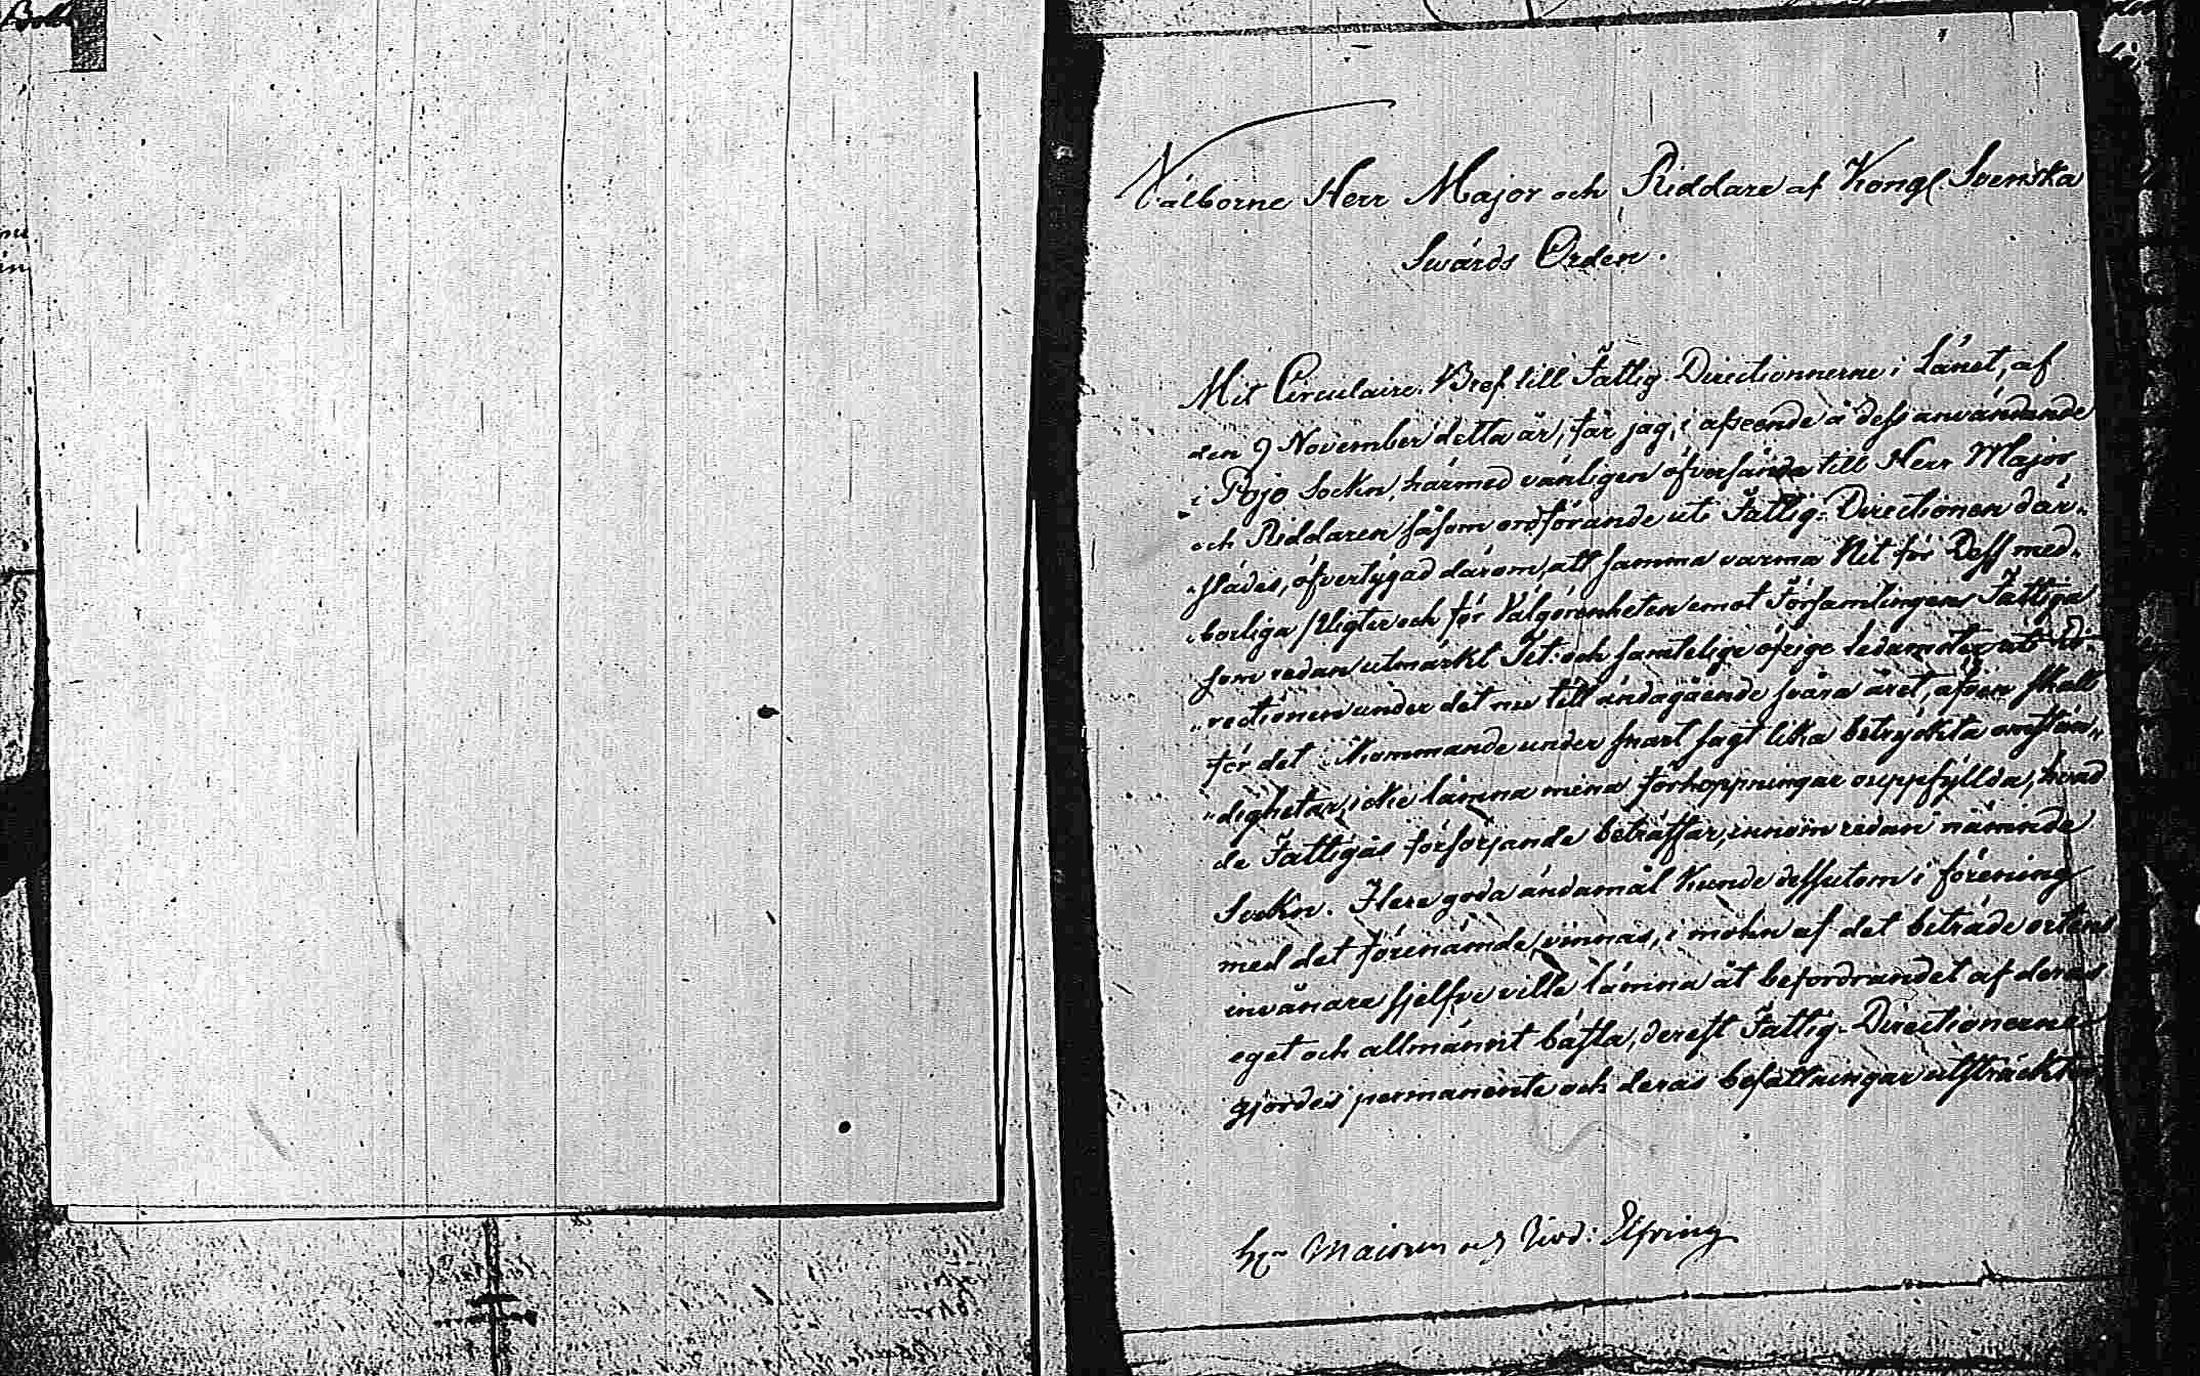 Välborne Herr Major och Riddare af Kongl Svenska
Swärds Orden.
Mit Circulaire Bref till Fattig Directionnerne i Länet, af
den 9 November detta år, får jag, i afseende å dess användande
i Pojo Sockn, härmed vänligen öfversända till Herr Major
och Riddaren såsom ordförande uti Fattig-Directionen där-
städes, öfvertygad därom, att samma varma Nit för Dess med-
borliga Pligter och för Välgörenheten emot Församlingens Fattiga
som redan utmärkt Tit: och samtelige öfrige ledamöter uti Di-
rectionen under det nu till ändagående svåra året, äfven skall
för det Kommande under snart sagt lika betryckta omstän-
digheter, icke lämna mina förhoppningar ouppfyllda, hvad
de Fattigas försörjande beträffar, innom redan nämnde
Sockn. Flere goda ändamål kunde dessutom i förening
med det förenämde vinnas, i mohn af det biträde ortens
invånare sjelfve ville lämna åt befordrandet af deras
eget och allmännt bästa, derest Fattig-Directionerne
gjordes permanente och deras befattningar utsträckte
Hr Majoren och Ridd: